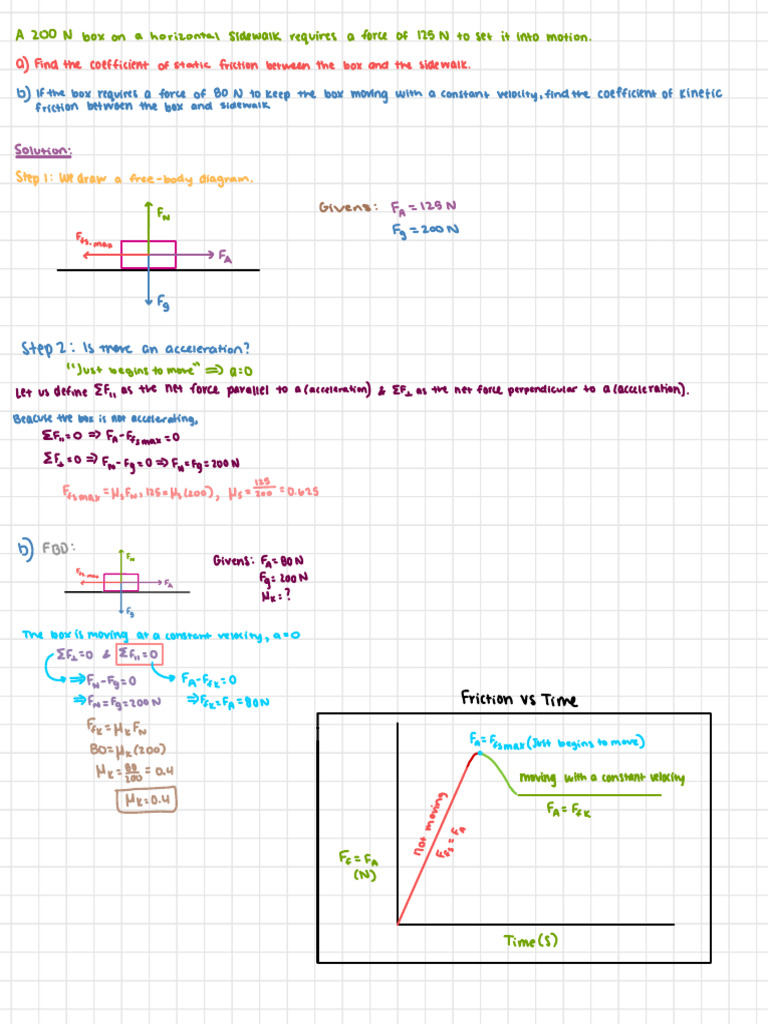 A 200 N box on a horizontal sidewalk requires a force of 125 N to set it into motion.
a) Find the coefficient of static friction between the box and the sidewalk.
b) If the box requires a force of 80 N to keep the box moving with a constant velocity, find the coefficient of kinetic
friction between the box and sidewalk
Solution:
Step 1: We draw a free-body diagram.
Givens: F_A = 125 N
F_g = 200 N
F_N
F_fs.max
F_A
F_g
Step 2: Is there an acceleration?
"Just begins to move" ⇒ a=0
Let us define ΣF_∥ as the net force parallel to a (acceleration) & ΣF_⊥ as the net force perpendicular to a (acceleration).
Beacuse the box is not accelerating,
ΣF_∥=0 ⇒ F_A-F_fsmax=0
ΣF_⊥=0 ⇒ F_N-Fg=0 ⇒ F_N=Fg=200 N
F_fsmax=μ_sF_N, 125=μ_s(200), μ_s=125/200=0.625
b) FBD:
F_N
F_fs.max
F_A
F_g
Givens: F_A=80N
Fg=200N
μ_K=?
The box is moving at a constant velocity, a=0
ΣF_⊥=0 & ΣF_∥=0
⇒F_N-Fg=0
⇒F_N=Fg=200N
F_A-F_fK=0
⇒F_fK=F_A=80N
F_fK=μ_KF_N
80=μ_K(200)
μ_K=80/200=0.4
μ_K=0.4
Friction vs Time
F_A=F_fsmax (Just begins to move)
moving with a constant velocity
F_A=F_fK
not moving
F_fs=F_A
F_f=F_A
(N)
Time(s)